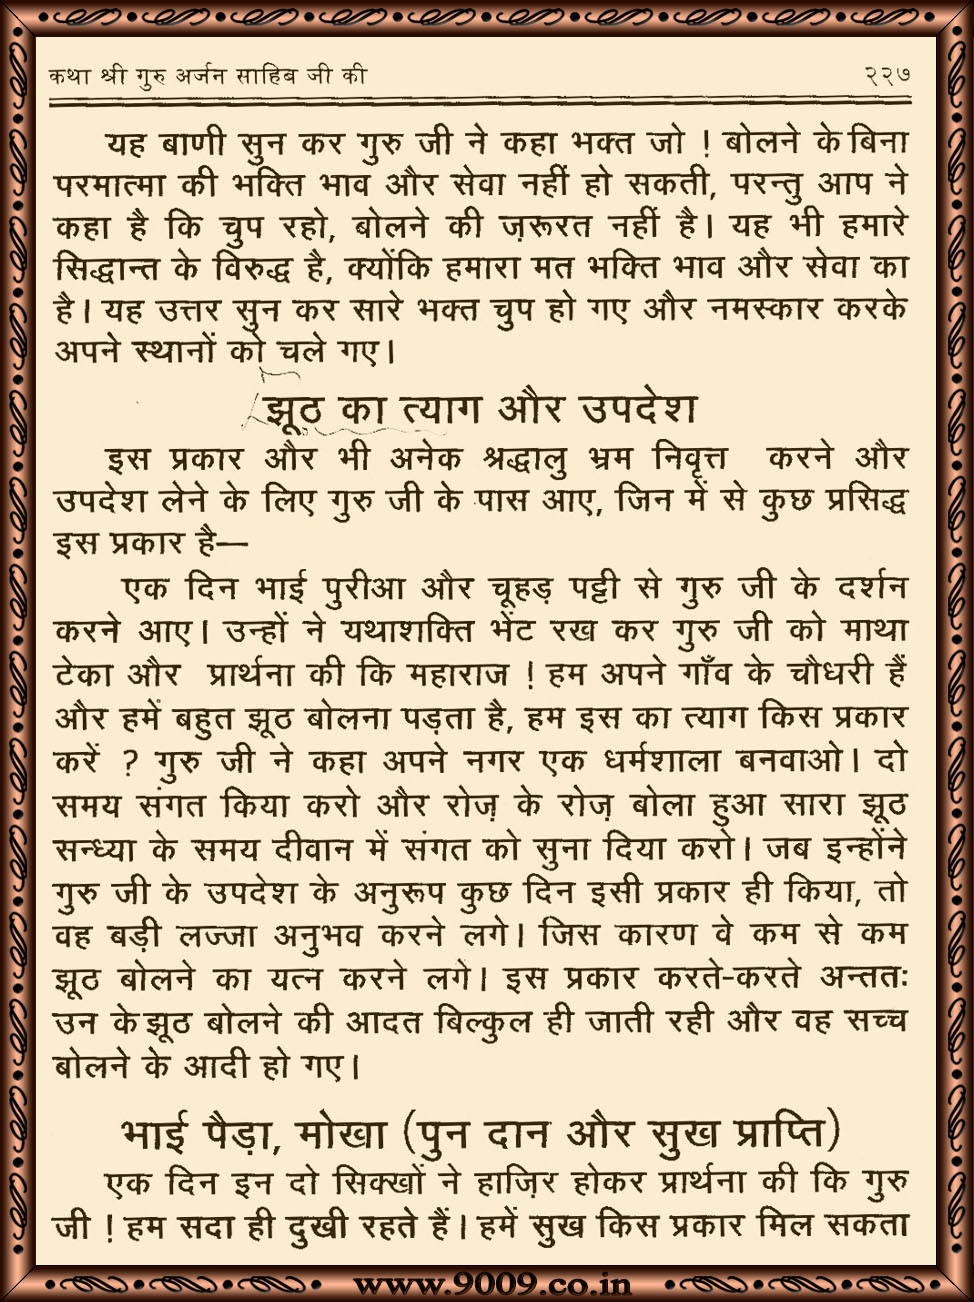 कथा श्री गुरु अर्जन साहिब जी की २२७
यह बाणी सुन कर गुरु जी ने कहा भक्त जो ! बोलने के बिना
परमात्मा की भक्ति भाव और सेवा नहीं हो सकती, परन्तु आप ने
कहा है कि चुप रहो, बोलने की ज़रूरत नहीं है। यह भी हमारे
सिद्धान्त के विरुद्ध है, क्योंकि हमारा मत भक्ति भाव और सेवा का
है। यह उत्तर सुन कर सारे भक्त चुप हो गए और नमस्कार करके
अपने स्थानों को चले गए।
झूठ का त्याग और उपदेश
इस प्रकार और भी अनेक श्रद्धालु भ्रम निवृत्त करने और
उपदेश लेने के लिए गुरु जी के पास आए, जिन में से कुछ प्रसिद्ध
इस प्रकार है—
एक दिन भाई पुरीआ और चूहड़ पट्टी से गुरु जी के दर्शन
करने आए। उन्हों ने यथाशक्ति भेंट रख कर गुरु जी को माथा
टेका और प्रार्थना की कि महाराज ! हम अपने गाँव के चौधरी हैं
और हमें बहुत झूठ बोलना पड़ता है, हम इस का त्याग किस प्रकार
करें ? गुरु जी ने कहा अपने नगर एक धर्मशाला बनवाओ। दो
समय संगत किया करो और रोज़ के रोज़ बोला हुआ सारा झूठ
सन्ध्या के समय दीवान में संगत को सुना दिया करो। जब इन्होंने
गुरु जी के उपदेश के अनुरूप कुछ दिन इसी प्रकार ही किया, तो
वह बड़ी लज्जा अनुभव करने लगे। जिस कारण वे कम से कम
झूठ बोलने का यत्न करने लगे। इस प्रकार करते-करते अन्ततः
उन के झूठ बोलने की आदत बिल्कुल ही जाती रही और वह सच्च
बोलने के आदी हो गए।
भाई पैड़ा, मोखा (पुन दान और सुख प्राप्ति)
एक दिन इन दो सिक्खों ने हाज़िर होकर प्रार्थना की कि गुरु
जी ! हम सदा ही दुखी रहते हैं। हमें सुख किस प्रकार मिल सकता
www.9009.co.in